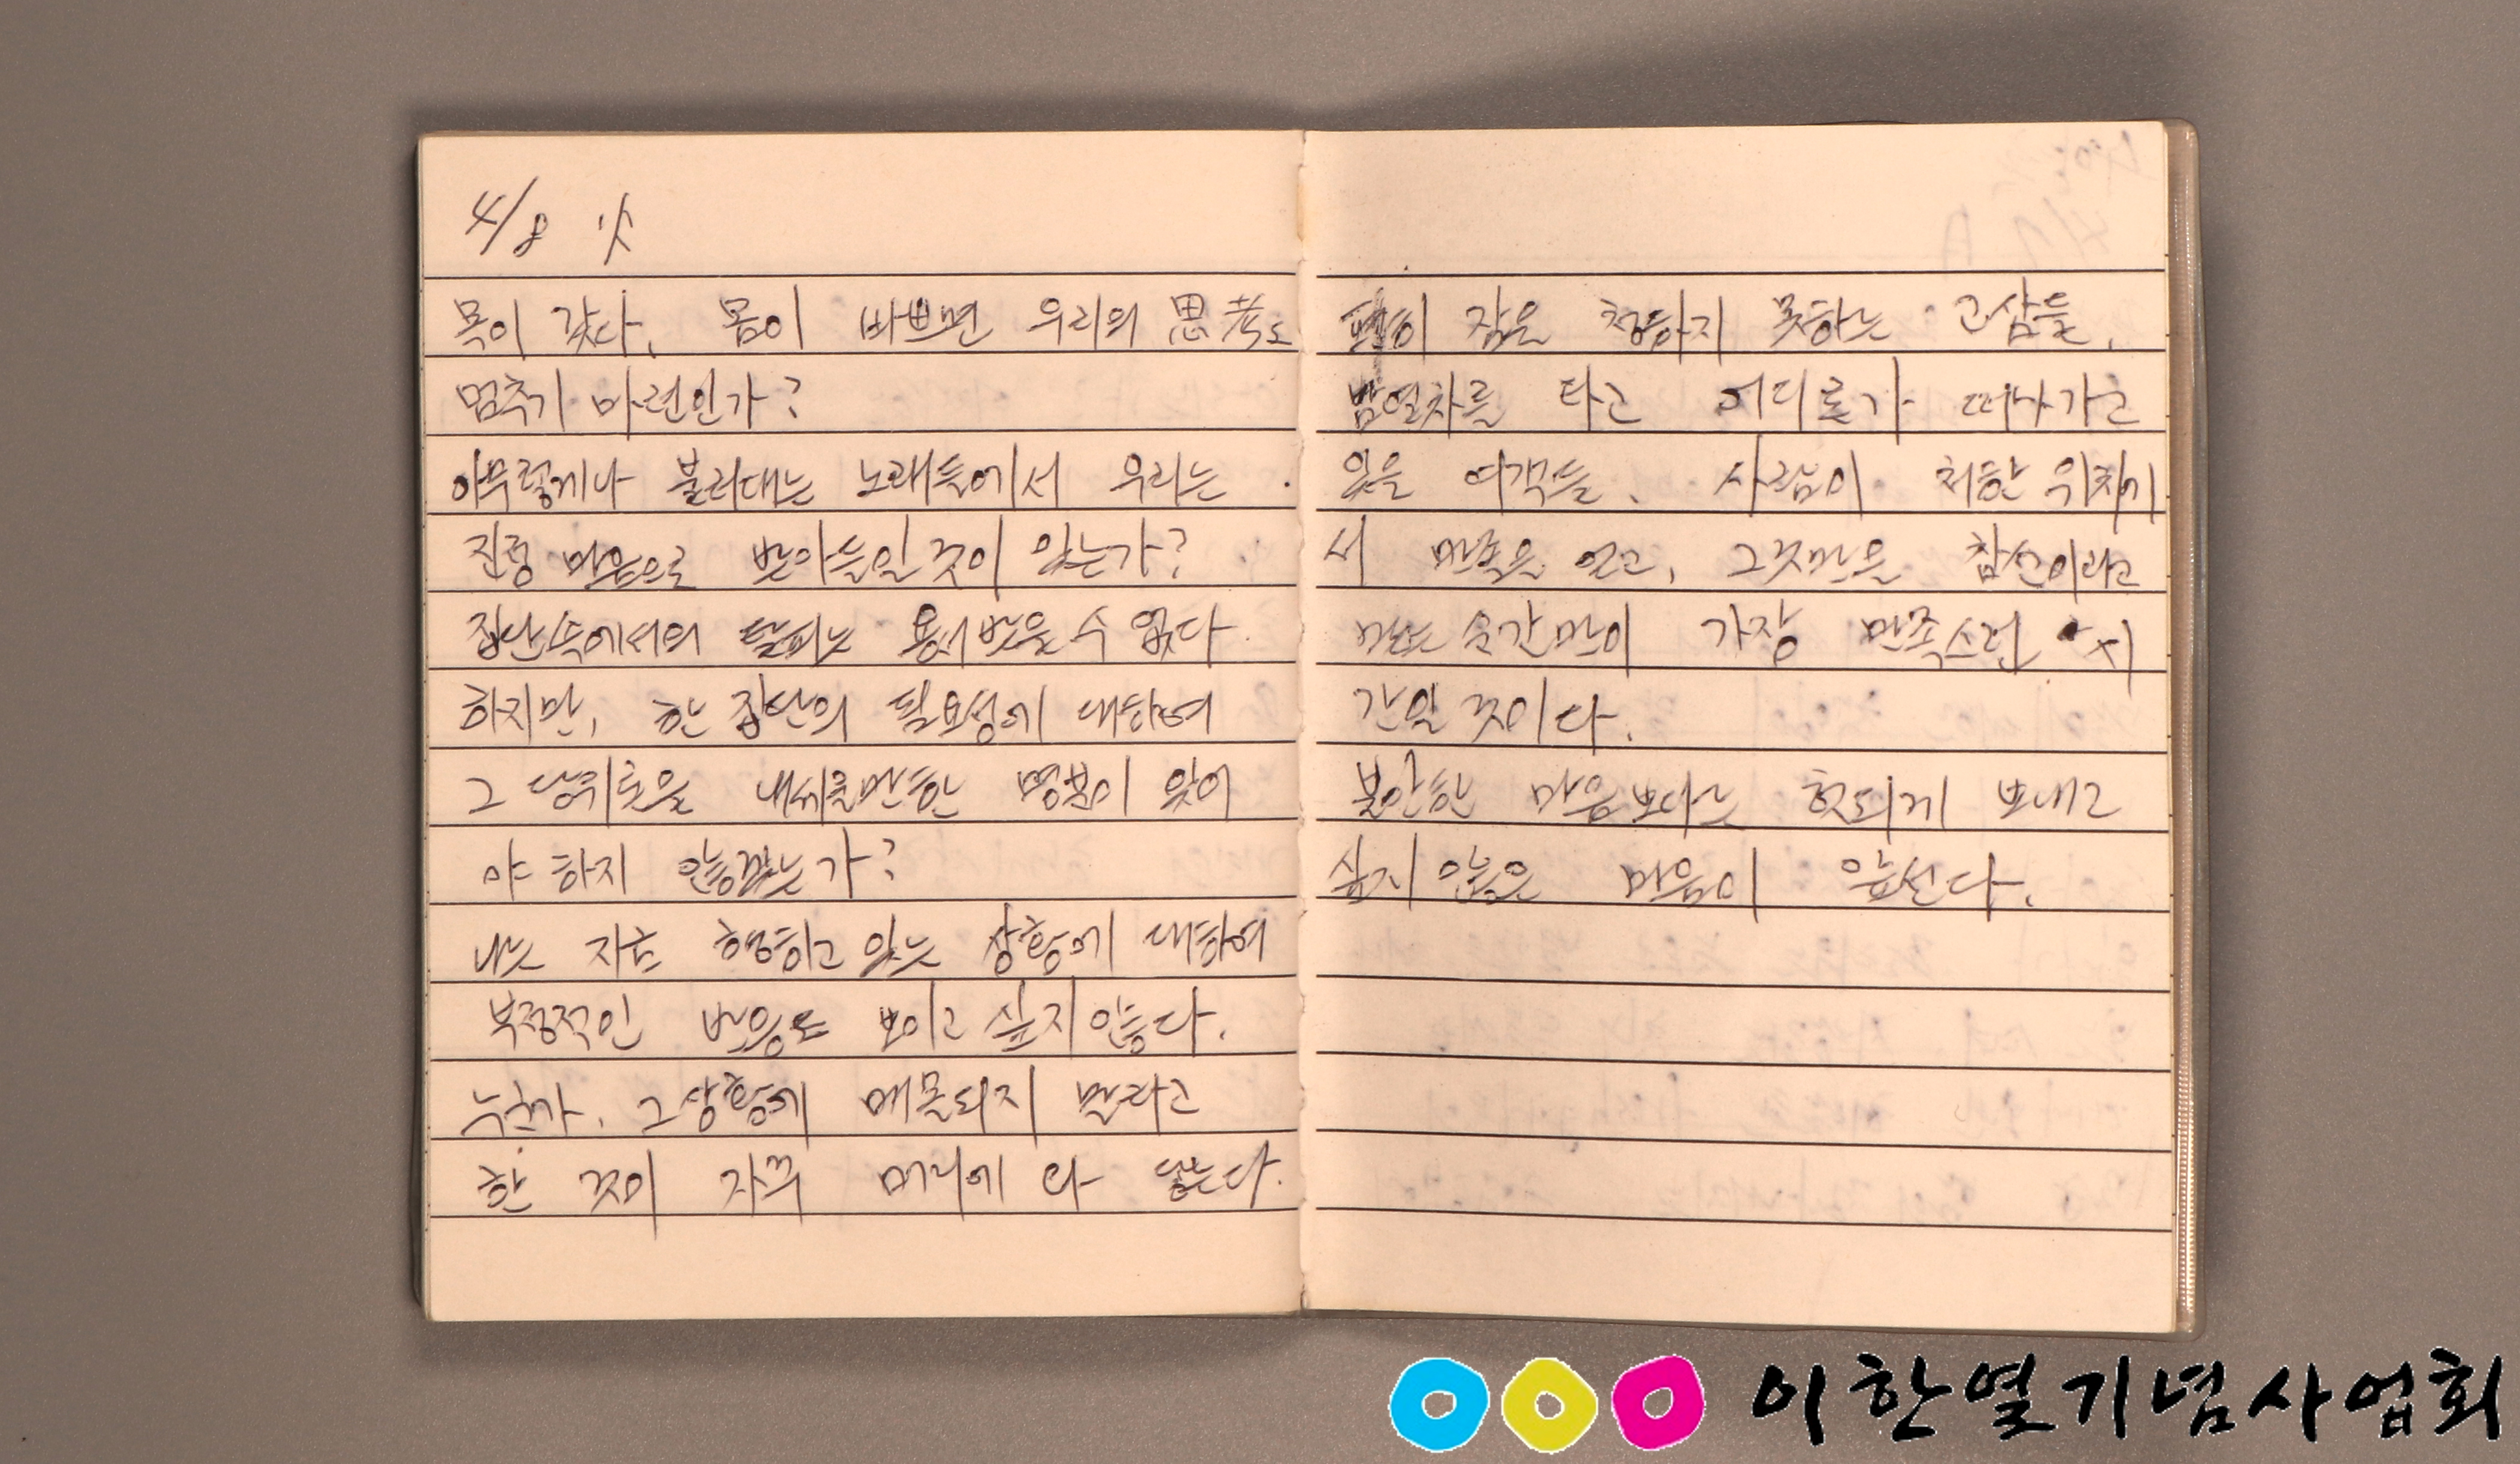 4/8 火
목이 갔다. 몸이 바쁘면 우리의 思考도
멈추기 마련인가?
아무렇게나 불러대는 노래들에서 우리는
진정 마음으로 받아들일 것이 있는가?
집단속에서의 탈피는 용서받을 수 없다.
하지만, 한 집단의 필요성에 대하여
그 당위론을 내세울만한 명분이 있어
야 하지 않겠는가?
나는 지금 행하고 있는 상황에 대하여
부정적인 반응도 보이고 싶지 않다.
누군가. 그 상황에 매몰되지 말라고
한 것이 자꾸 머리에 와 닿는다.
편히 잠을 청하지 못하는 고삼들.
밤열차를 타고 어디론가 떠나가고
있을 여객들. 사람이 처한 위치에
서 만족을 얻고, 그것만을 참선이라고
믿는 순간만이 가장 만족스런 시
간일 것이다.
불안한 마음보다는 헛되게 보내고
싶지 않은 마음이 앞선다.
이한열기념사업회